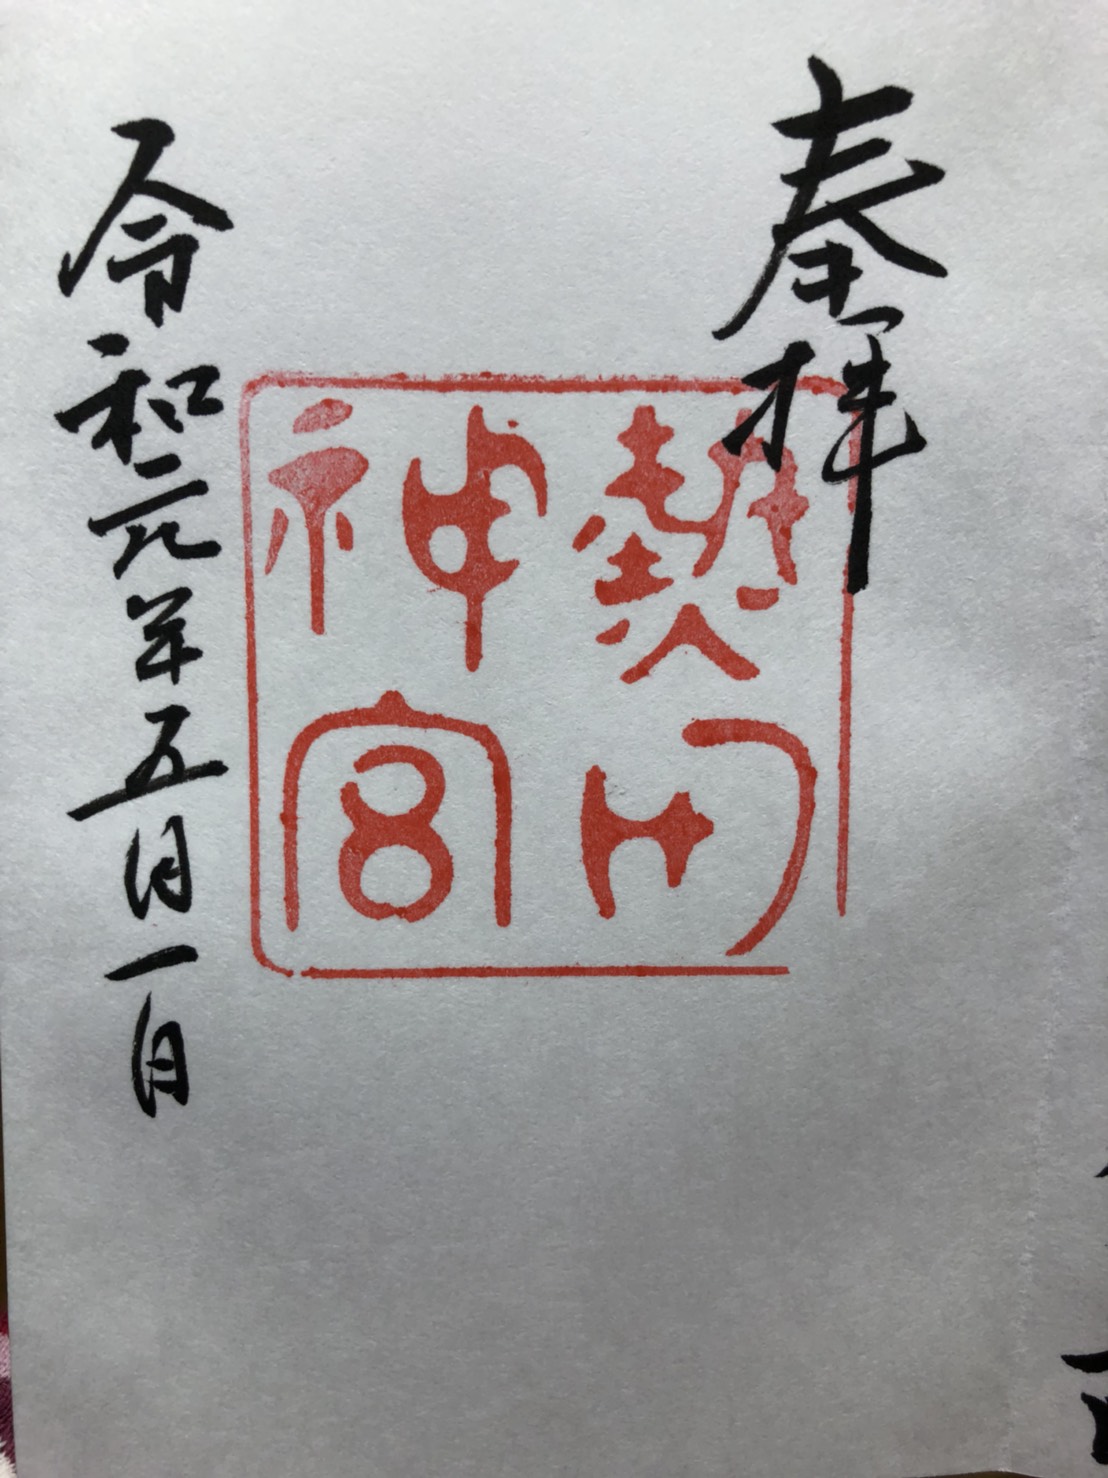 奉拝
熱田
神宮
令和元年五月一日